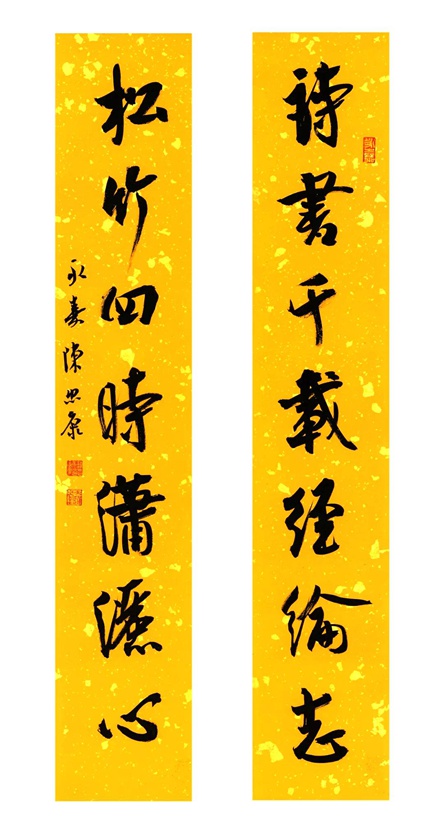 詩書千載經綸志
松竹四時瀟灑心
永壽陳思康